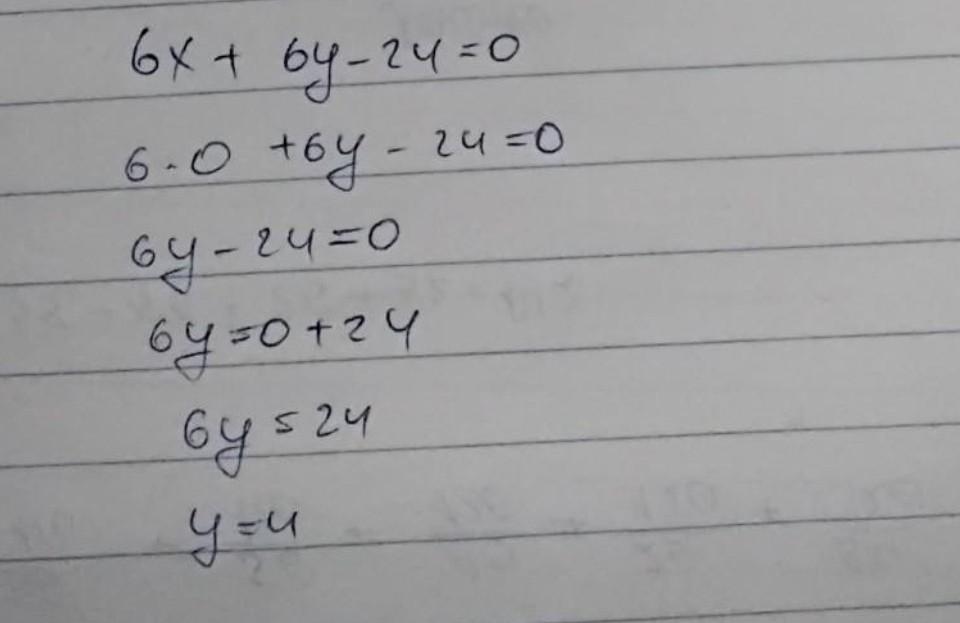 6x + 6y - 24 = 0
6 · 0 + 6y - 24 = 0
6y - 24 = 0
6y = 0 + 24
6y = 24
y = 4